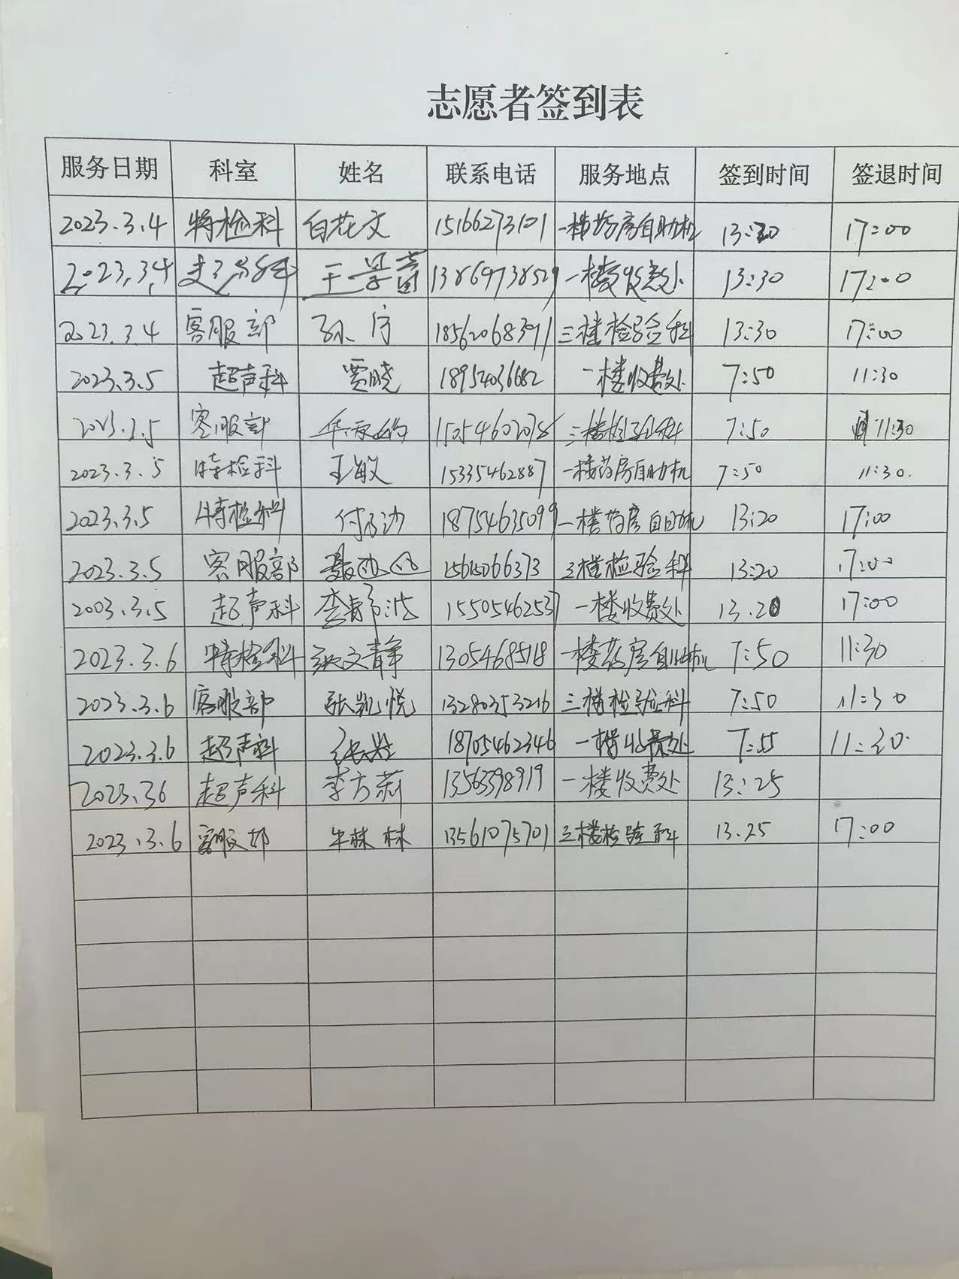 志愿者签到表
服务日期 科室 姓名 联系电话 服务地点 签到时间 签退时间
2023.3.4 特检科 白花文 15166273101 一楼药房自助机 13:20 17:00
2023.3.4 王景萱 13869738529 一楼收费处 13:30 17:00
2023.3.4 客服部 孙宁 18562068391 三楼检验科 13:30 17:00
2023.3.5 超声科 贾晓 18954036682 一楼收费处 7:50 11:30
2023.3.5 客服部 三楼检验科 7:50 11:30
2023.3.5 特检科 王敏 15335462887 一楼药房自助机 7:50 11:30
2023.3.5 特检科 18754635099 一楼药房自助机 13:20 17:00
2023.3.5 客服部 15615066373 三楼检验科 13:20 17:00
2003.3.5 超声科 15505462537 一楼收费处 13.20 17:00
2023.3.6 特检科 文静 1305468518 一楼药房自助机 7:50 11:30
2023.3.6 客服部 张凯悦 13280353216 三楼检验科 7:50 11:30
2023.3.6 超声科 18705462346 一楼收费处 7:55 11:30
2023.3.6 超声科 李方莉 1356398919 一楼收费处 13:25
2023.3.6 客服部 牛林林 13561075701 三楼检验科 13.25 17:00